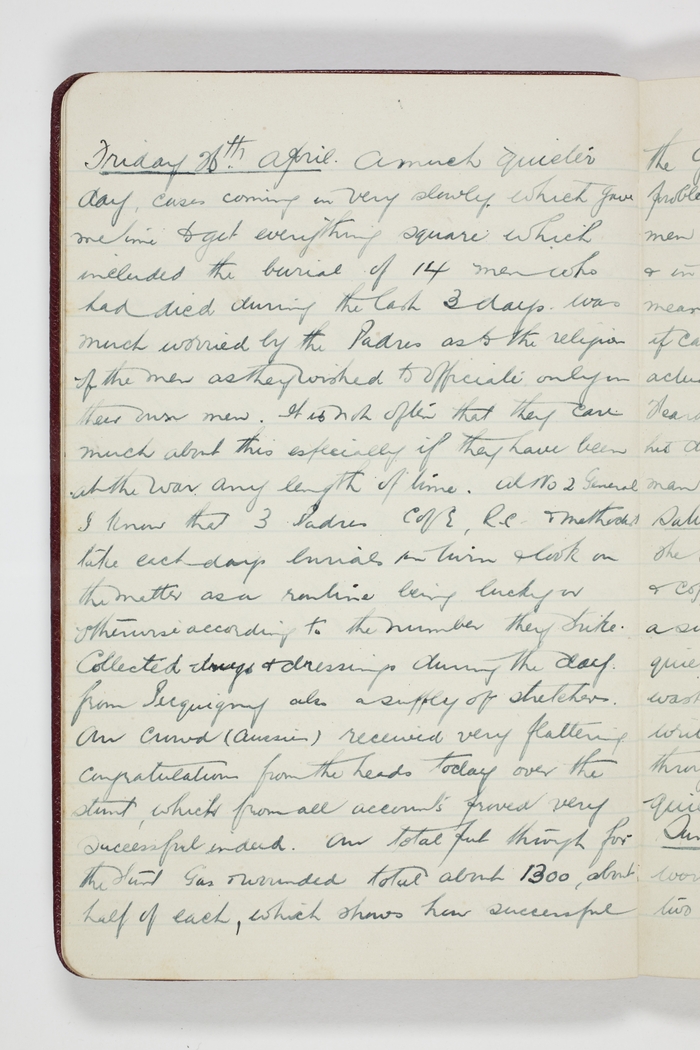 Friday 26th April. A much quieter
day, cases coming in very slowly, which gave
me time to get everything square which
included the burial of 14 men who
had died during the last 3 days. was
much worried by the Padres as to the religion
of the men as they wished to officiate only in
their own men. It is not often that they care
much about this especially if they have been
at the war any length of time. At No 2 General
I know that 3 Padres C of E, R.C. & Methodist
take each days burials in turn & look on
the matter as a routine being lucky or
otherwise according to the number they strike.
Collected drugs & dressings during the day.
from Picquigny also a supply of stretchers.
Our crowd (Aussies) received very flattering
congratulations from the heads today over the
stunt, which from all accounts proved very
successful indeed. Our total put through for
the stunt Gas & wounded total about 1300, about
half of each, which shows how successful
the
proble
men
& in
mean
if ca
actu
his
man
she
& co
a su
quie
was
wri
throu
quie
two